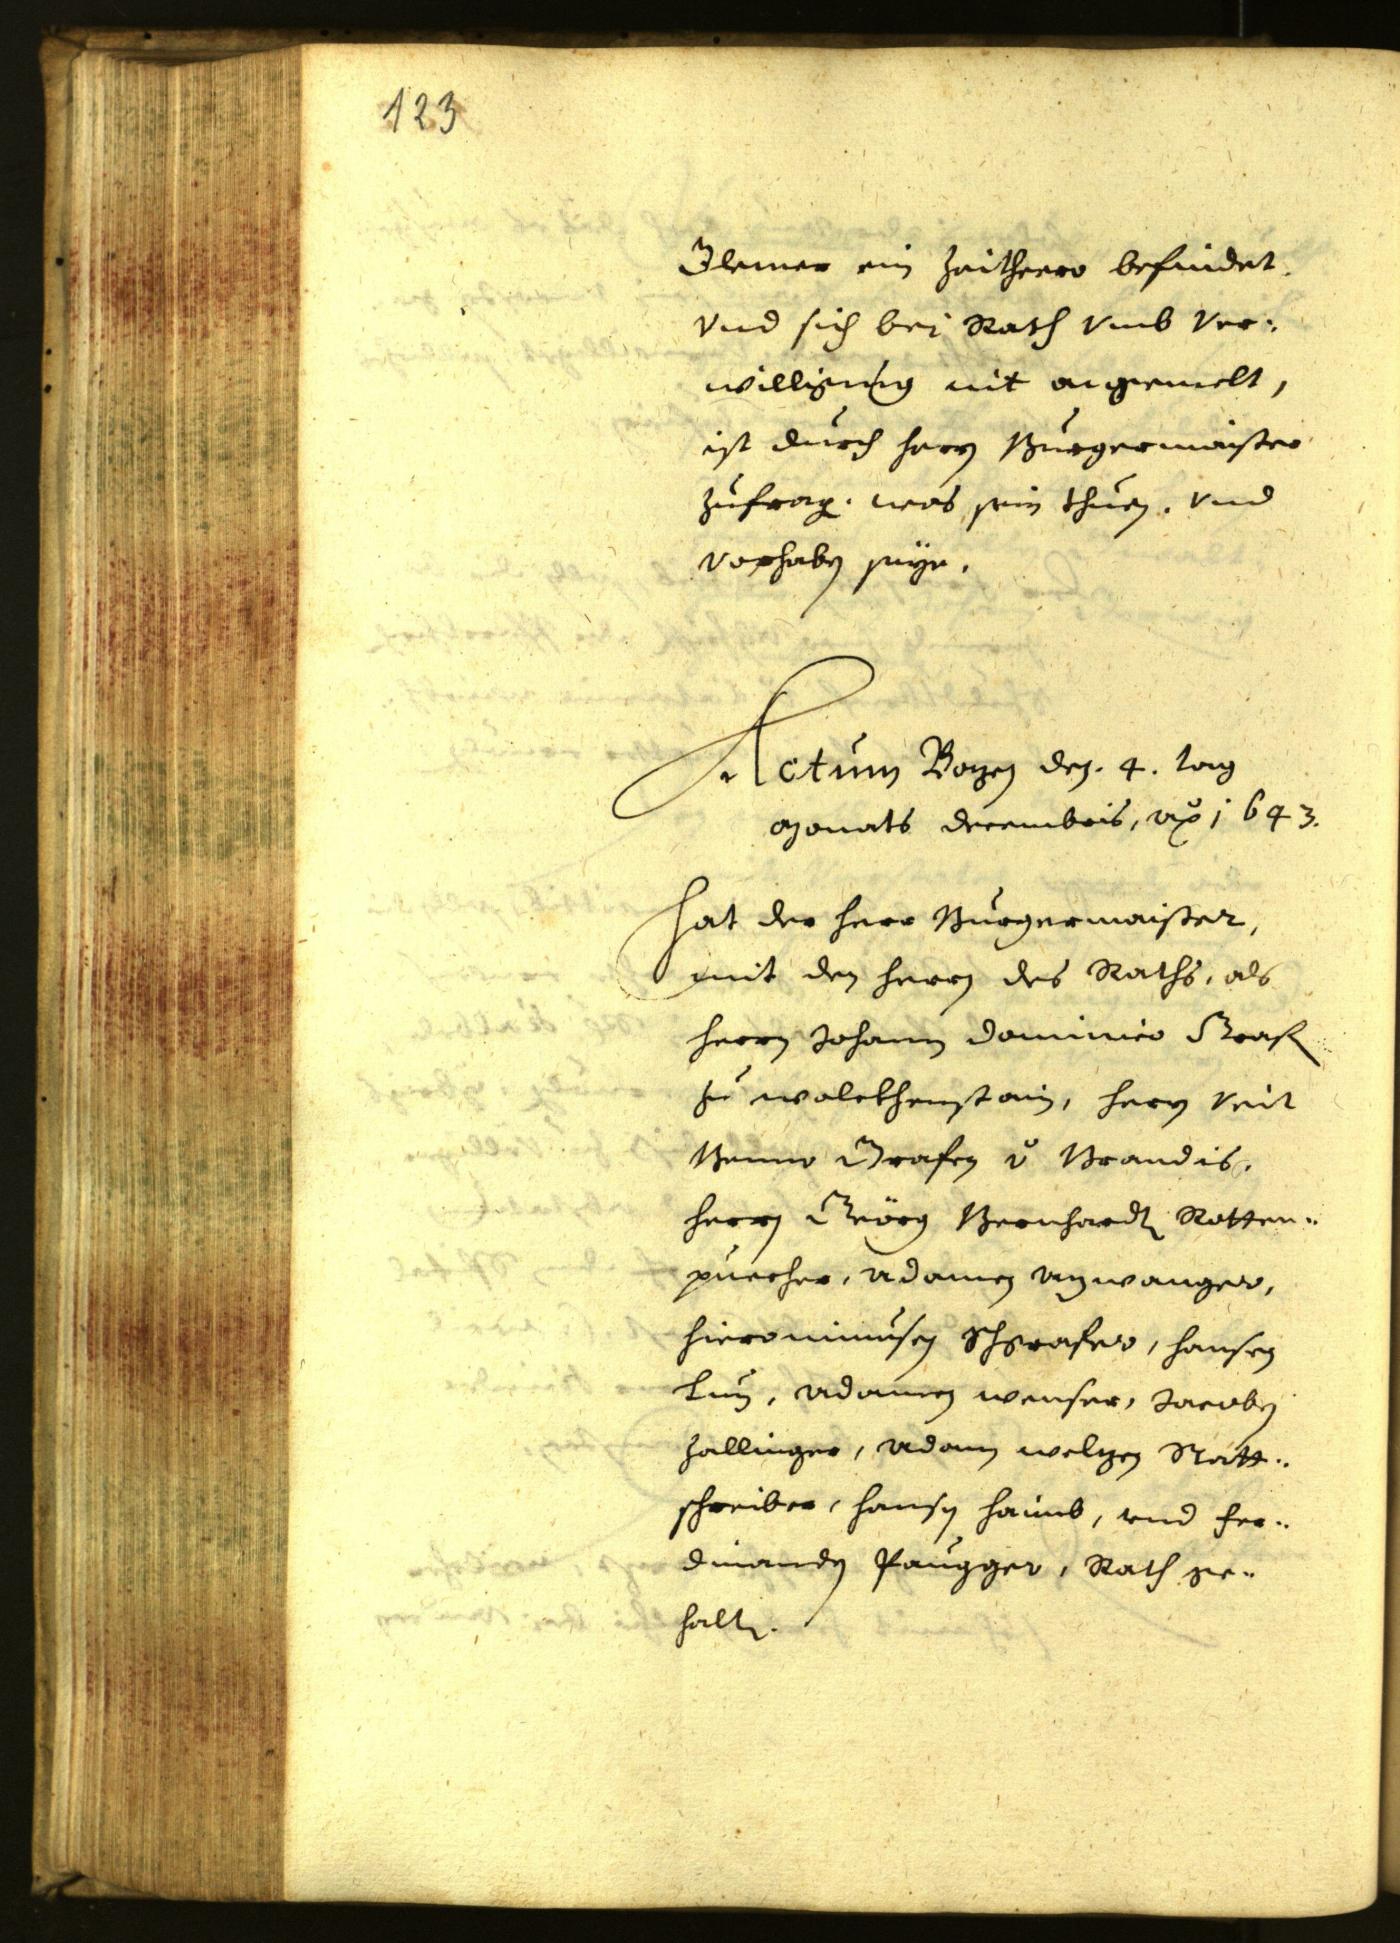 123
ein Zeithero befindet.
Vnd sich bei Rath vmb Ver:
willigung nit angemelt,
ist durch herrn Burgermaister
zufrag. was sein thuen. Vnd
Vorhaben seÿe.
Actum Bozen den. 4. tag
Monats decembris, Aõ 1643.
Hat der herr Burgermaister,
mit den herrn des Raths, als
herrn Johann Dominico Grafen
zu wolckhenstain, herrn Veit
Benno Grafen v̈ Brandis.
herrn Geörg Bernhardt Rotten:
puecher, Adamen Anwanger,
hieronimusen Schgrafer, hansen
Lun, Adamen wenser, Jacoben
Zallinger, Adam welzen Statt:
schreiber, hansen haimb, vnd Fer:
dinanden Paugger, Rath ge:
halten.